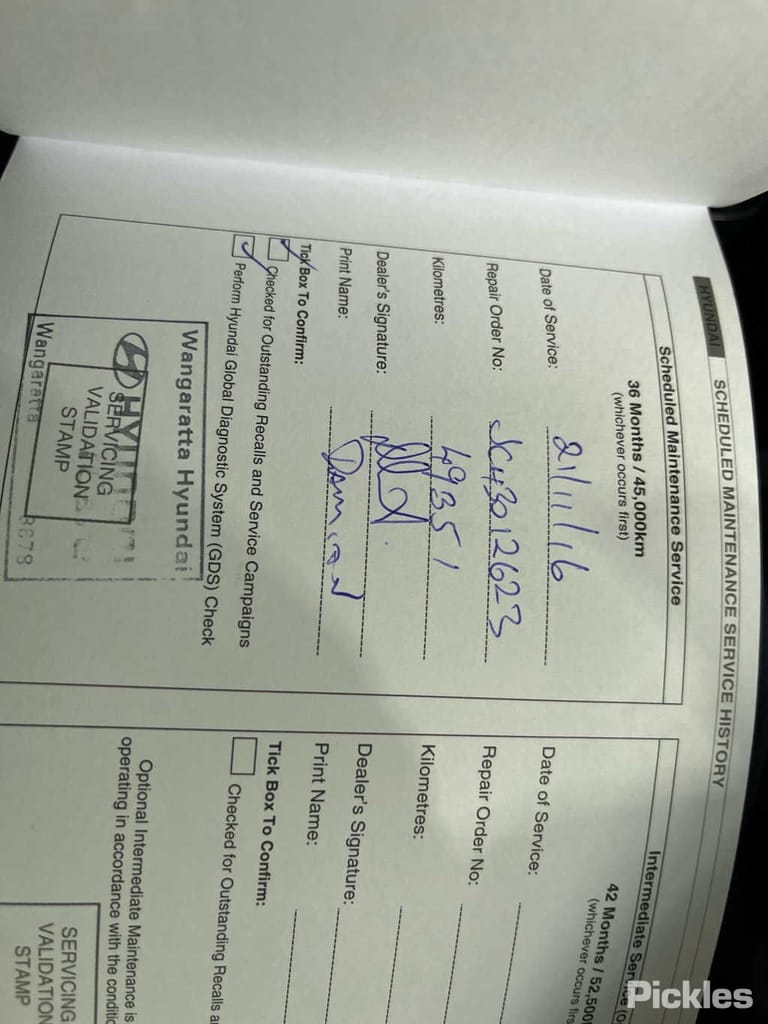 HYUNDAI SCHEDULED MAINTENANCE SERVICE HISTORY
Scheduled Maintenance Service
36 Months / 45,000km
(whichever occurs first)
Date of Service: 21/11/16
Repair Order No:
Kilometres: 49351
Dealer's Signature:
Print Name:
Tick Box To Confirm:
Checked for Outstanding Recalls and Service Campaigns
Perform Hyundai Global Diagnostic System (GDS) Check
Wangaratta Hyundai
SERVICING
VALIDATION
STAMP
Wangaratta
Intermediate
42 Months / 52,500
(whichever occurs
Date of Service:
Repair Order No:
Kilometres:
Dealer's Signature:
Print Name:
Tick Box To Confirm:
Checked for Outstanding Recalls
Optional Intermediate Maintenance is
operating in accordance with the
SERVICING
VALIDATION
STAMP
Pickles